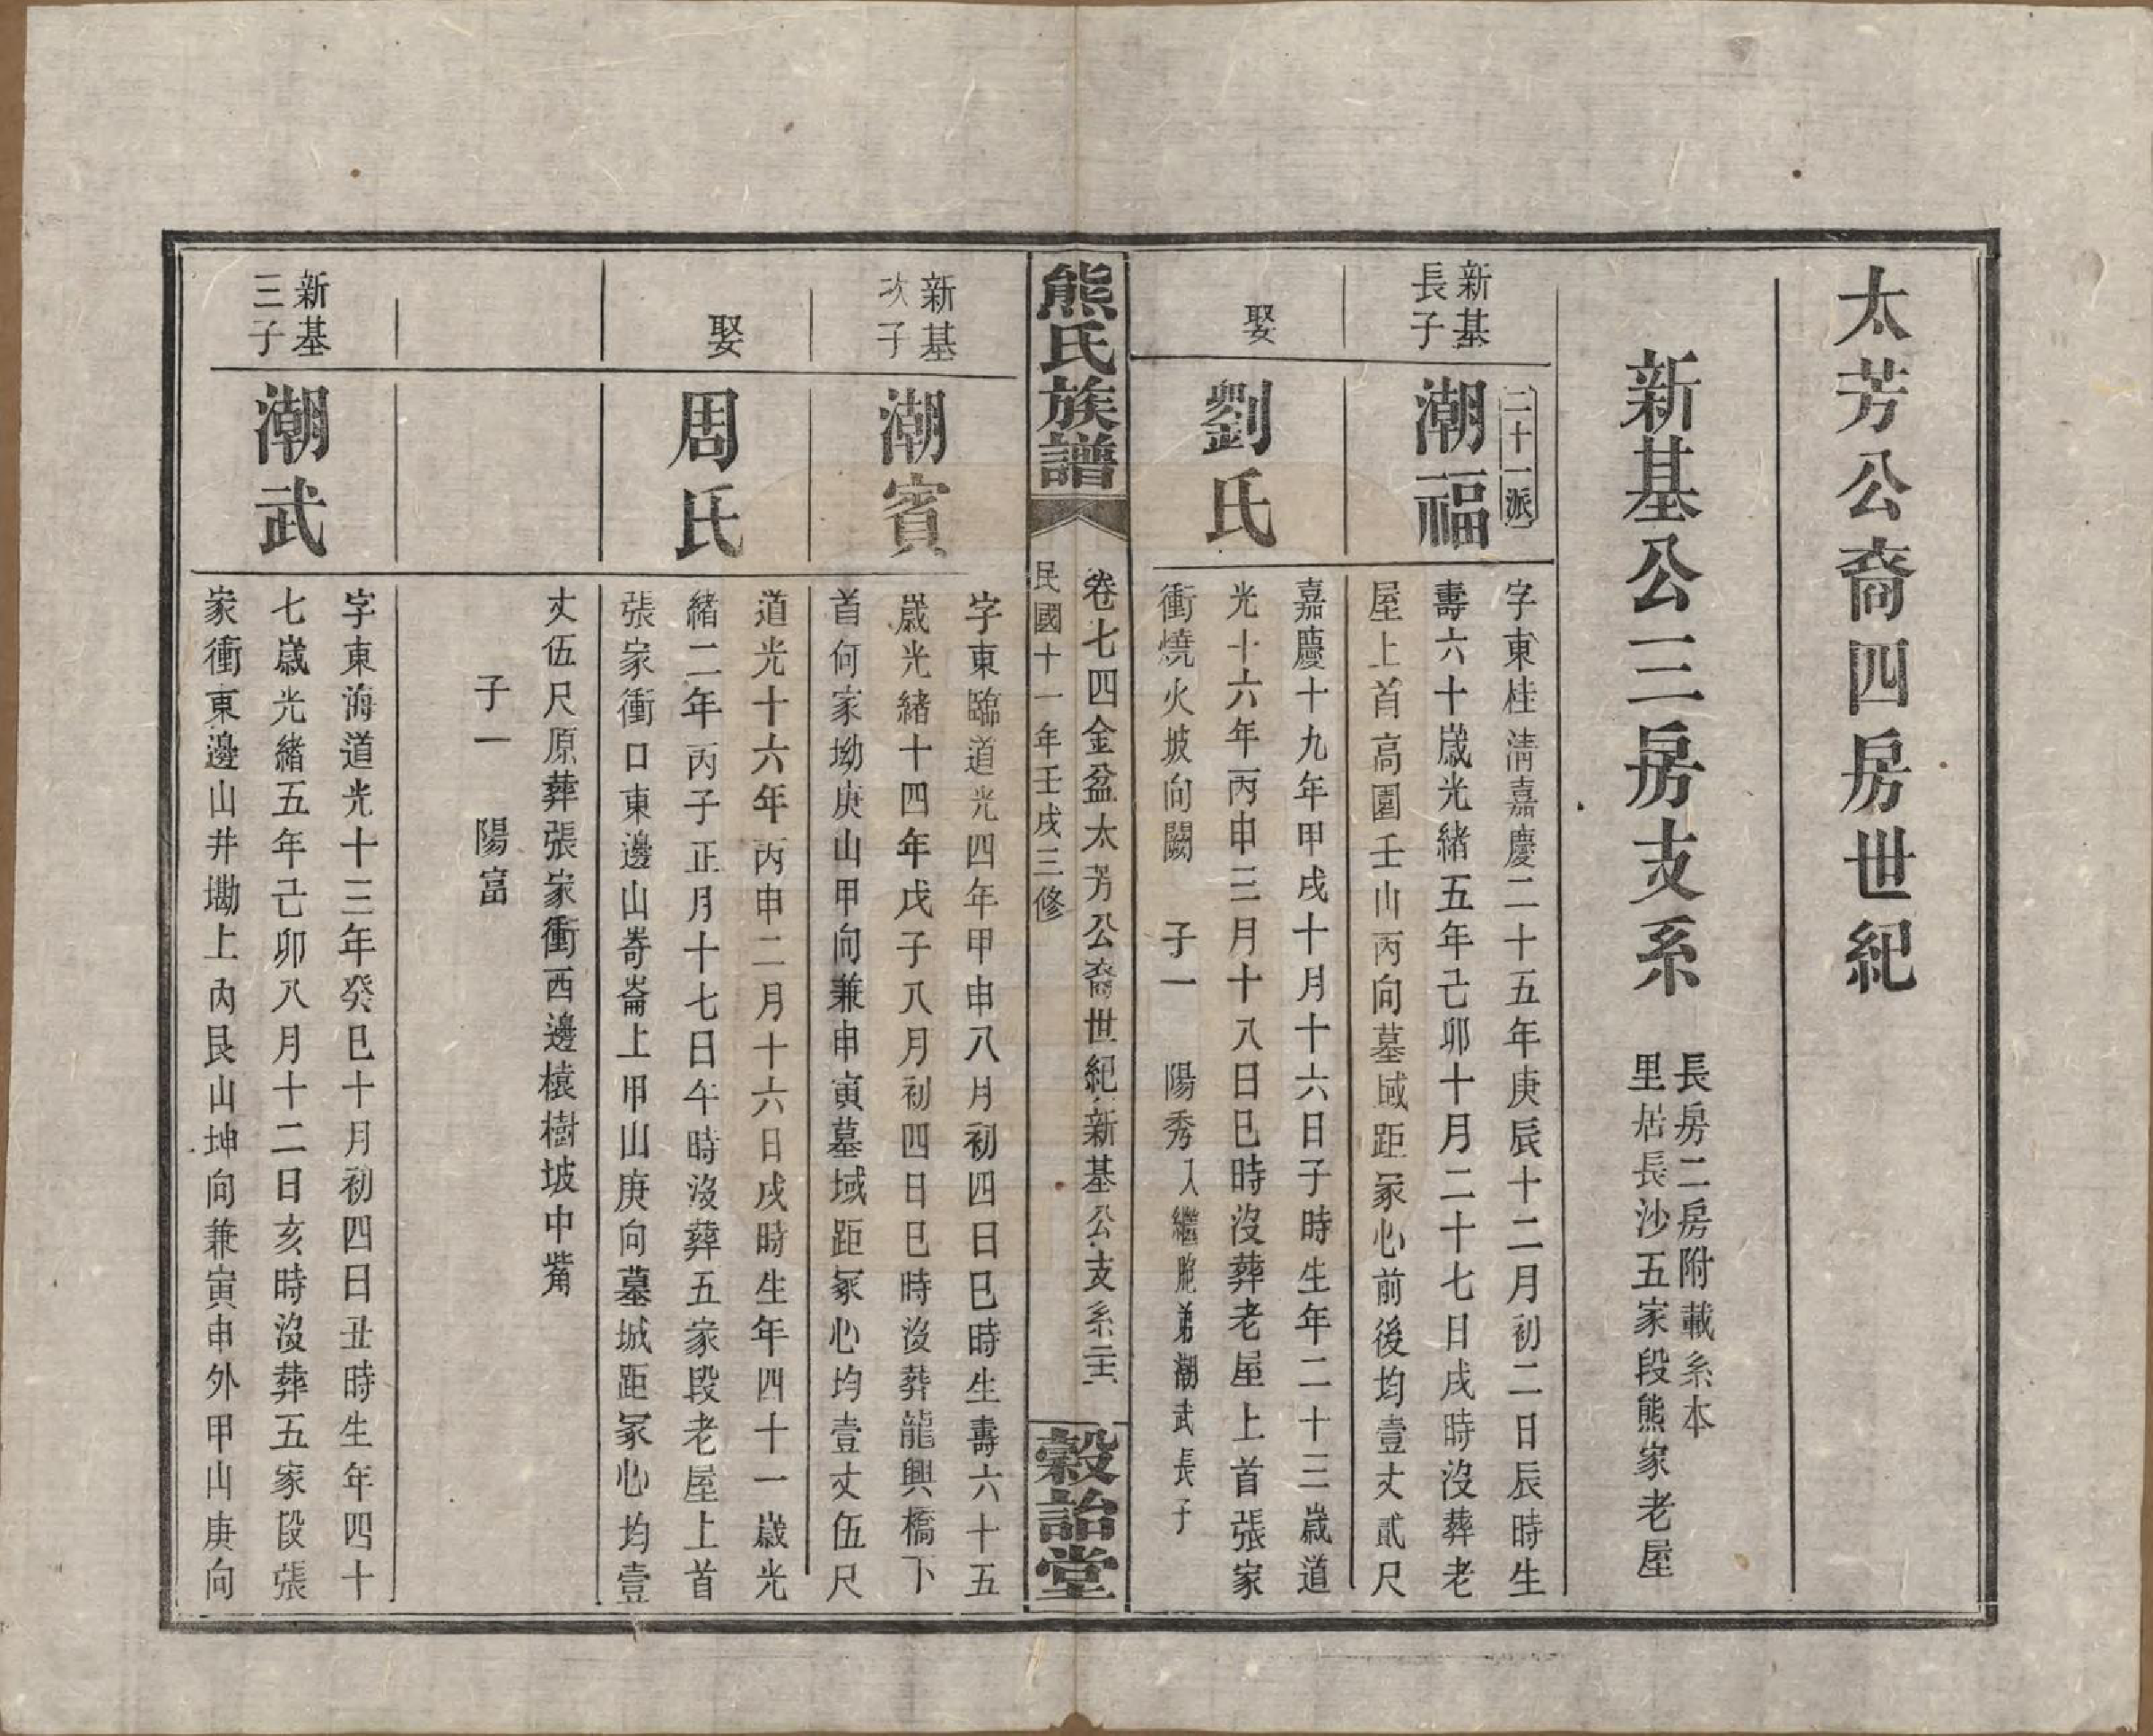 太芳公裔四房世紀
新基公三房支系
長房二房附載系本
里居長沙五家段熊家老屋
二十一派
新基
長子
潮福
字東桂清嘉慶二十五年庚辰十二月初二日辰時生
壽六十歲光緒五年己卯十月二十七日戌時沒葬老
屋上首高園壬山丙向墓域距冢心前後均壹丈貳尺
娶
劉氏
嘉慶十九年甲戌十月十六日子時生年二十三歲道
光十六年丙申三月十八日巳時沒葬老屋上首張家
衝燒火坡向闕　子一　陽秀入繼胞弟潮武長子
熊氏族譜
卷七四金盆太芳公裔世紀新基公支系
民國十一年壬戌三修
穀詒堂
新基
次子
潮賓
字東臨道光四年甲申八月初四日巳時生壽六十五
歲光緒十四年戊子八月初四日巳時沒葬龍興橋下
首何家坳庚山甲向兼申寅墓域距冢心均壹丈伍尺
娶
周氏
道光十六年丙申二月十六日戌時生年四十一歲光
緒二年丙子正月十七日午時沒葬五家段老屋上首
張家衝口東邊山崙上甲山庚向墓域距冢心均壹
丈伍尺原葬張家衝西邊樣樹坡中嘴
子一　陽富
新基
三子
潮武
字東海道光十三年癸巳十月初四日丑時生年四十
七歲光緒五年己卯八月十二日亥時沒葬五家段張
家衝東邊山井墈上內艮山坤向兼寅申外甲山庚向